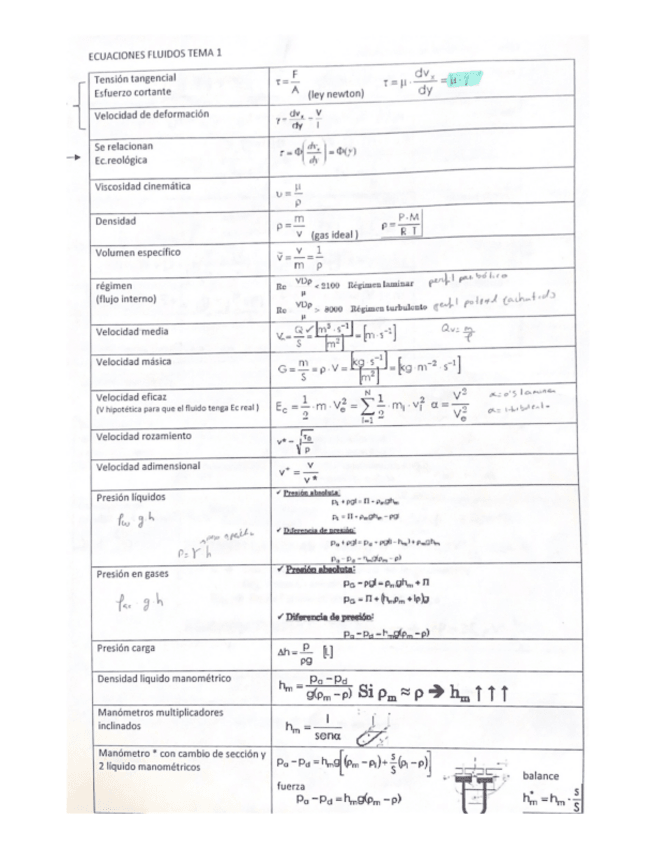 ECUACIONES FLUIDOS TEMA 1
Tensión tangencial
Esfuerzo cortante
τ = F/A (ley newton) τ = μ · dvₓ/dy = μ · γ
Velocidad de deformación
γ = dvₓ/dy = V/l
Se relacionan
Ec.reológica
τ = Φ(dvₓ/dy) = Φ(γ)
Viscosidad cinemática
υ = μ/ρ
Densidad
ρ = m/v (gas ideal ) ρ = P·M/R T
Volumen específico
ṽ = v/m = 1/ρ
régimen
(flujo interno)
Re VDρ/μ < 2100 Régimen laminar perfil parabólico
Re VDρ/μ > 8000 Régimen turbulento perfil
Velocidad media
V = Q/S = [m³·s⁻¹]/[m²] = [m·s⁻¹] Qv = m/ρ
Velocidad másica
G = m/S = ρ · V = [kg·s⁻¹]/[m²] = [kg·m⁻²·s⁻¹]
Velocidad eficaz
(V hipotética para que el fluido tenga Ec real )
E_c = 1/2 · m · V_e² = Σ_{i=1}^{N} 1/2 · m_i · v_i² α = V²/V_e² α=0'5 laminar
Velocidad rozamiento
v* = √(τ₀/ρ)
Velocidad adimensional
v⁺ = v/v*
Presión líquidos
g h
✓ Presión absoluta:
✓ Diferencia de presión:
p_a - p_d = h_m g(ρ_m - ρ)
Presión en gases
g h
✓ Presión absoluta:
p_G - ρgl = ρ_m g h_m + Π
p_G = Π + (h_m ρ_m + lρ)g
✓ Diferencia de presión:
p_a - p_d = h_m g(ρ_m - ρ)
Presión carga
Δh = p/ρg [L]
Densidad liquido manométrico
h_m = (p_a - p_d)/g(ρ_m - ρ) Si ρ_m ≈ ρ ➔ h_m ↑↑↑
Manómetros multiplicadores
inclinados
h_m = l/senα
Manómetro * con cambio de sección y
2 líquido manométricos
p_a - p_d = h_m g[(ρ_m - ρ_l) + s/S (ρ_l - ρ)]
fuerza
p_a - p_d = h_m g(ρ_m - ρ)
balance
h*_m = h_m · s/S